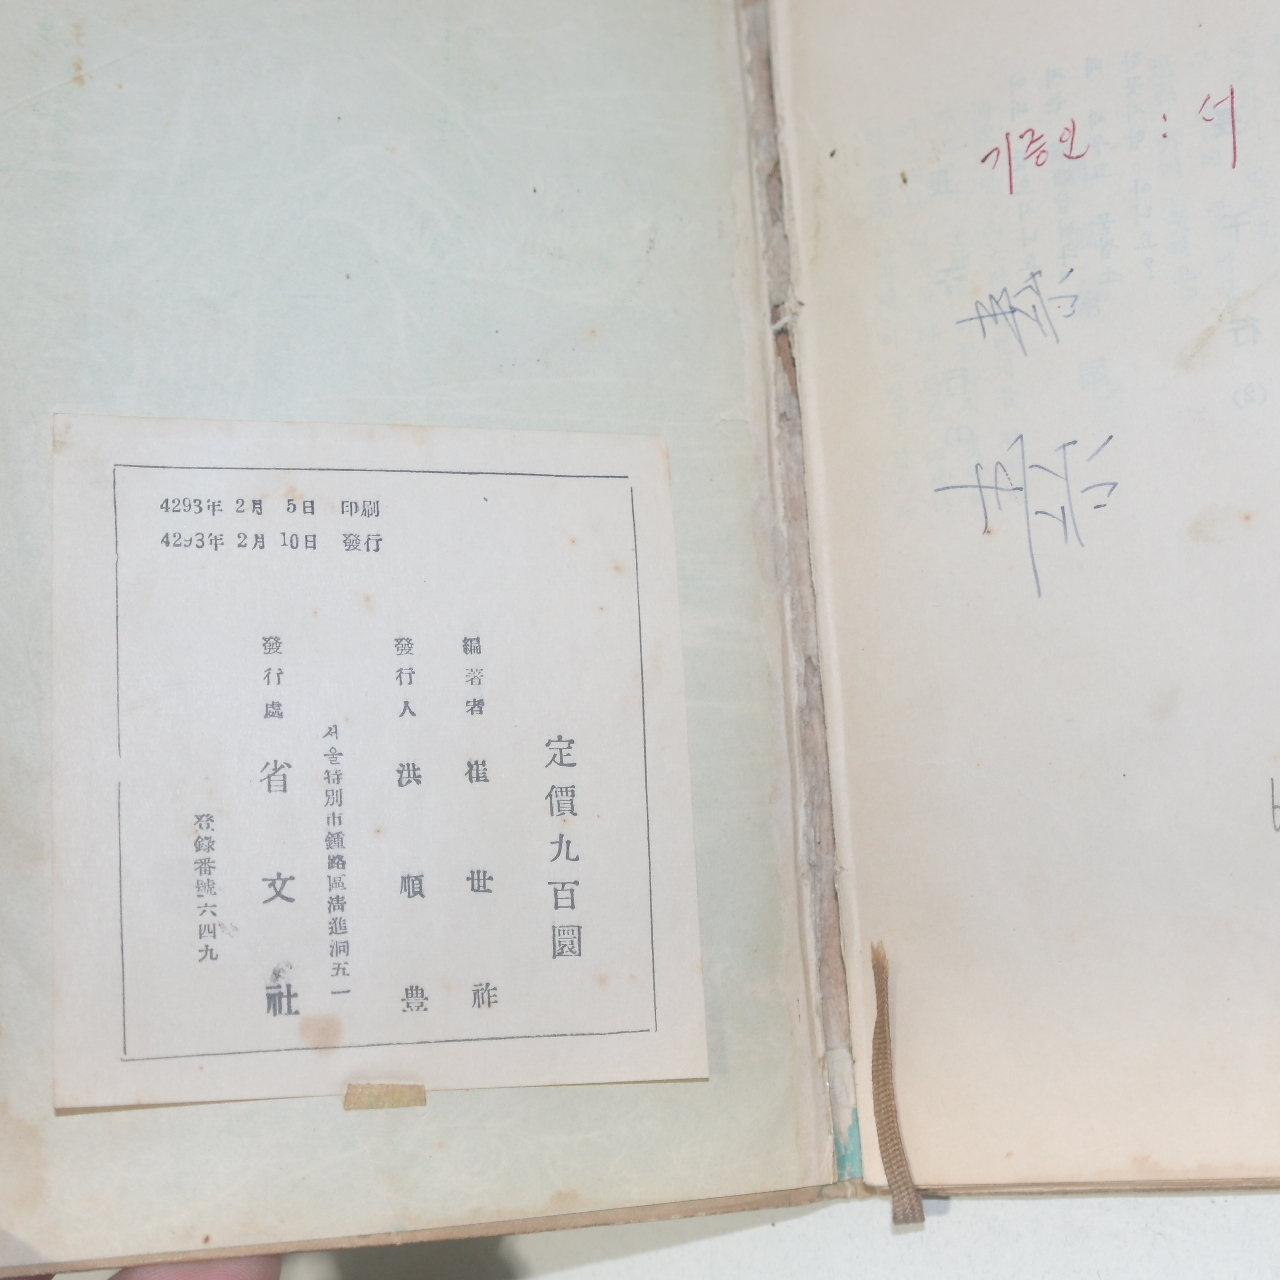 4293年 2月 5日 印刷
4293年 2月 10日 發行
定價九百圜
編著者 崔世祚
發行人 洪順豊
서울特別市鍾路區淸進洞五一
發行處 省文社
登錄番號六四九
기증인 : 서